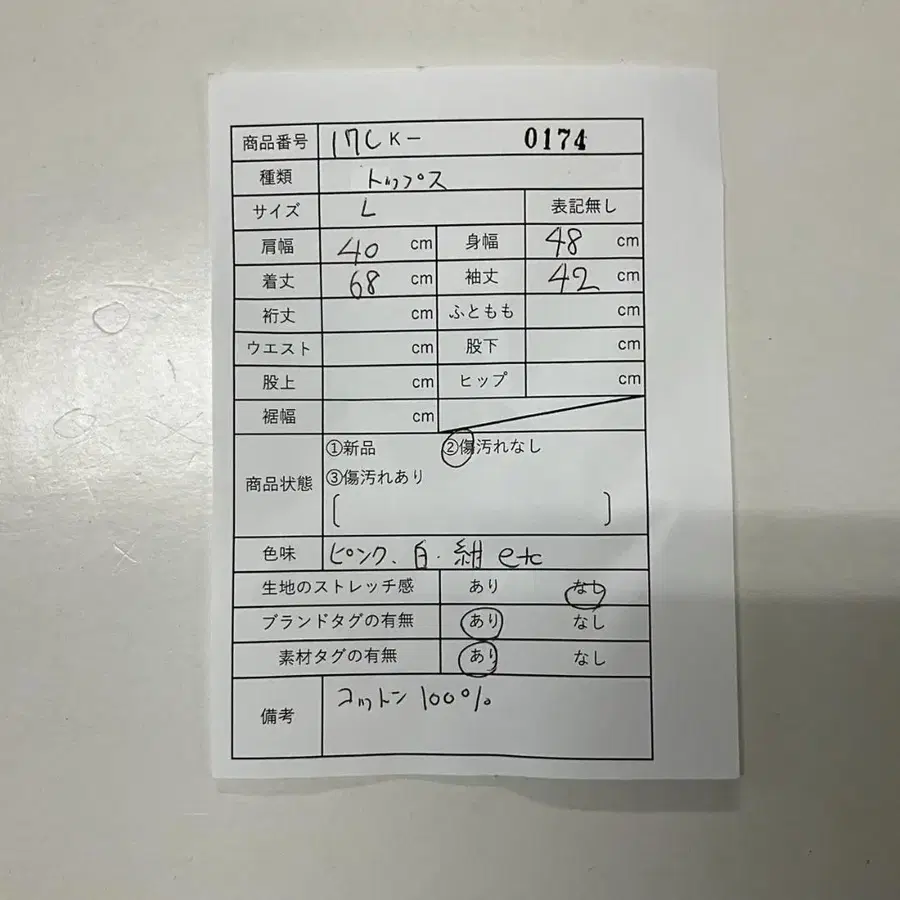 商品番号 17CK- 0174
種類 トップス
サイズ L 表記無し
肩幅 40 cm 身幅 48 cm
着丈 68 cm 袖丈 42 cm
裄丈 cm ふともも cm
ウエスト cm 股下 cm
股上 cm ヒップ cm
裾幅 cm
商品状態 ①新品 ②傷汚れなし
③傷汚れあり
[ ]
色味 ピンク、白・紺 etc
生地のストレッチ感 あり なし
ブランドタグの有無 あり なし
素材タグの有無 あり なし
備考 コットン 100%